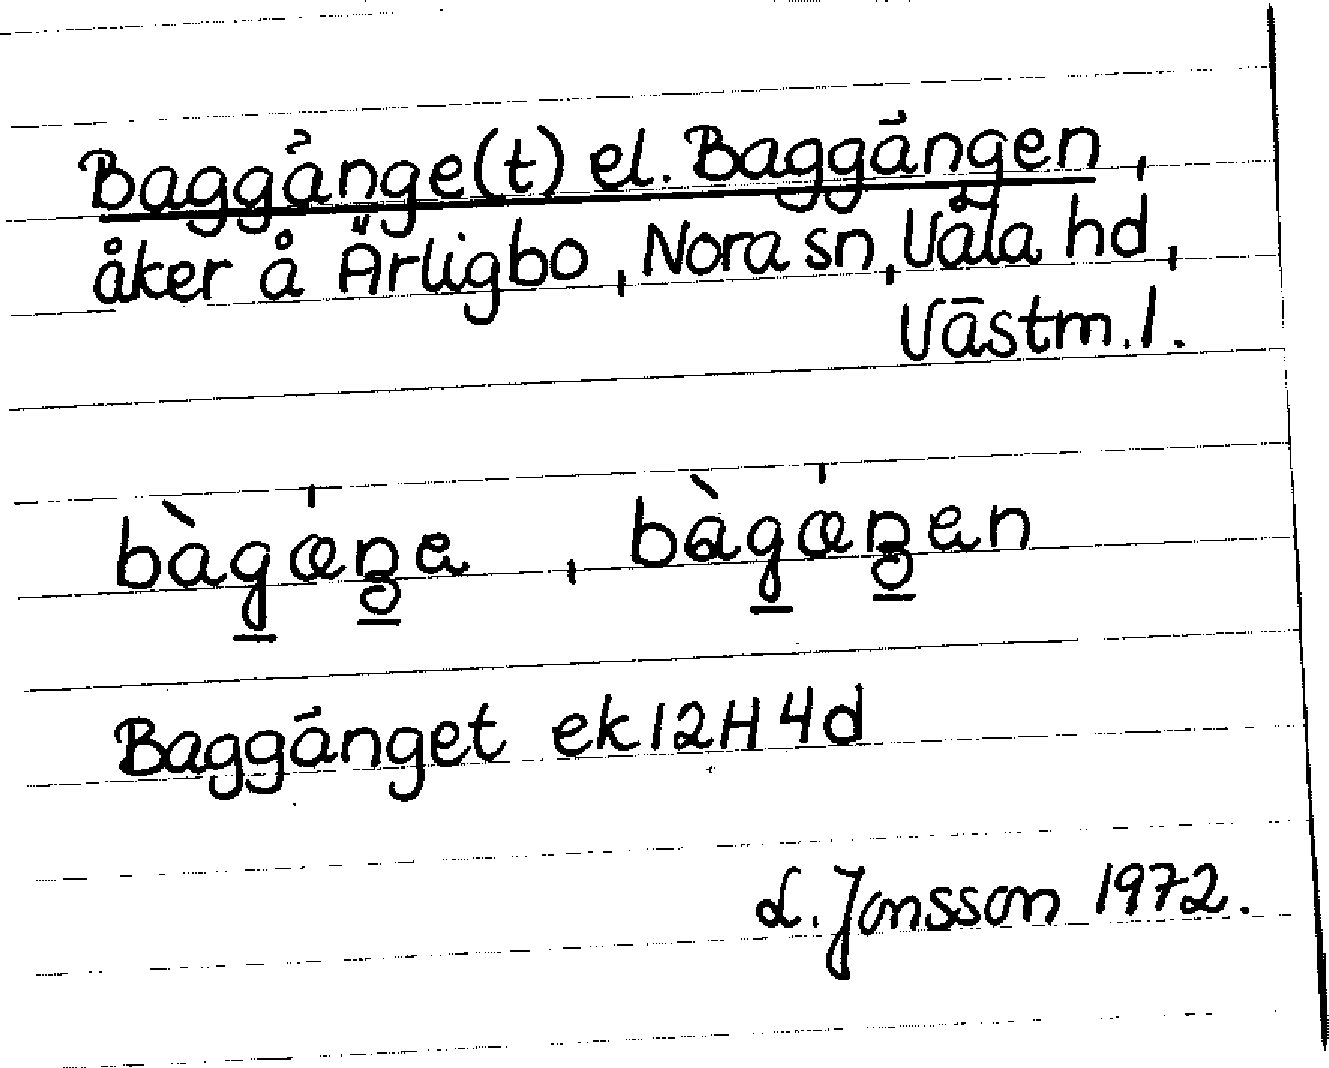 Baggänge(t) el. Baggängen,
åker å Ärligbo, Nora sn, Våla hd,
Västm. l.
bàgæŋe, bàgæŋen
Baggänget ek 12H 4d
L. Jonsson 1972.